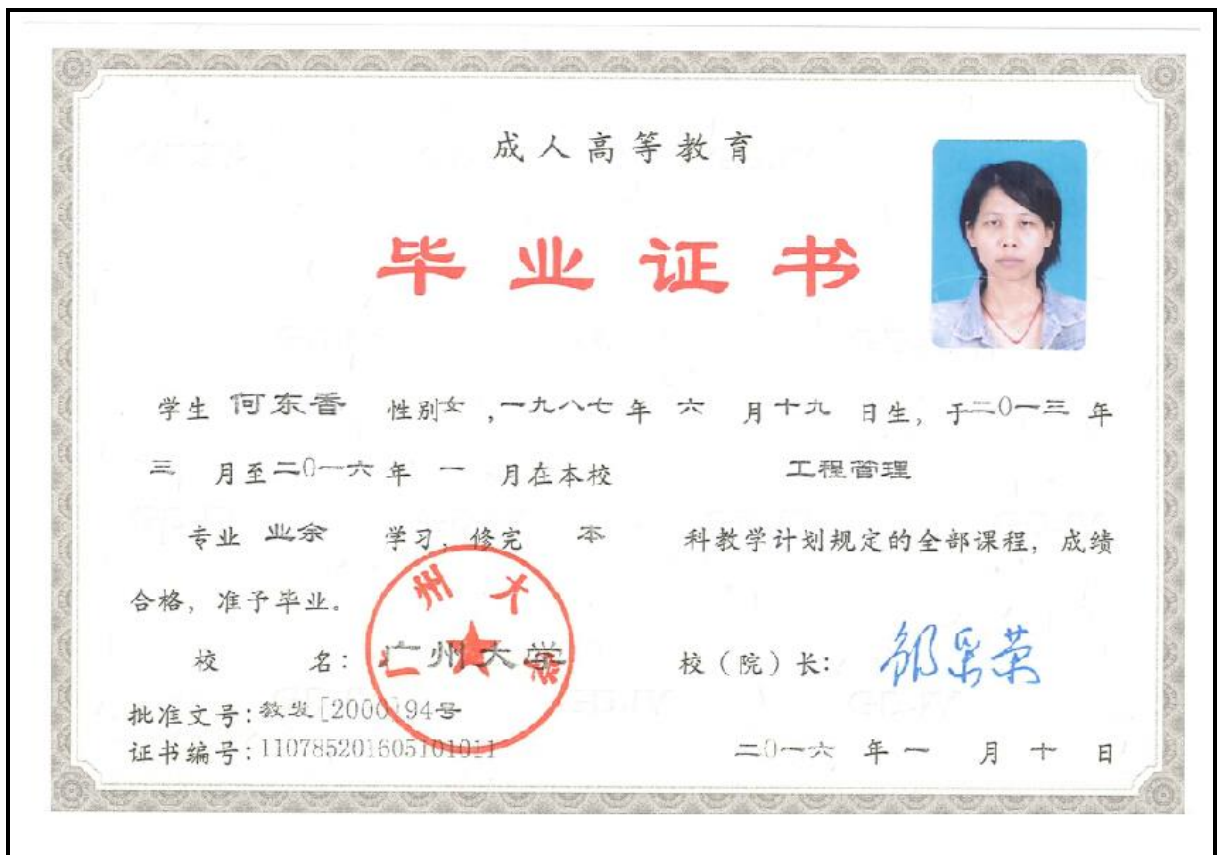 成人高等教育
毕业证书
学生 何东香 性别女,一九八七年 六 月十九 日生, 于二0一三 年
三 月至二0一六年 一 月在本校 工程管理
专业 业余 学习, 修完 本 科教学计划规定的全部课程, 成绩
合格, 准予毕业。
校 名: 广州大学 校(院)长:
批准文号: 教发[2000]94号
证书编号: 110785201605101011 二0一六 年 一 月 十 日
广州大学